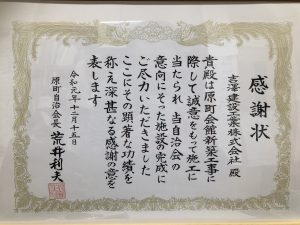 感謝状
吉澤建設工業株式会社 殿
貴殿は原町会館新築工事に
際して誠意をもって施工に
当たられ 当自治会の
意向にそった施設の完成に
ご尽力いただきました
ここにその顕著な功績を
称え深甚なる感謝の意を
表します
令和元年十二月十五日
原町自治会長 荒井利夫